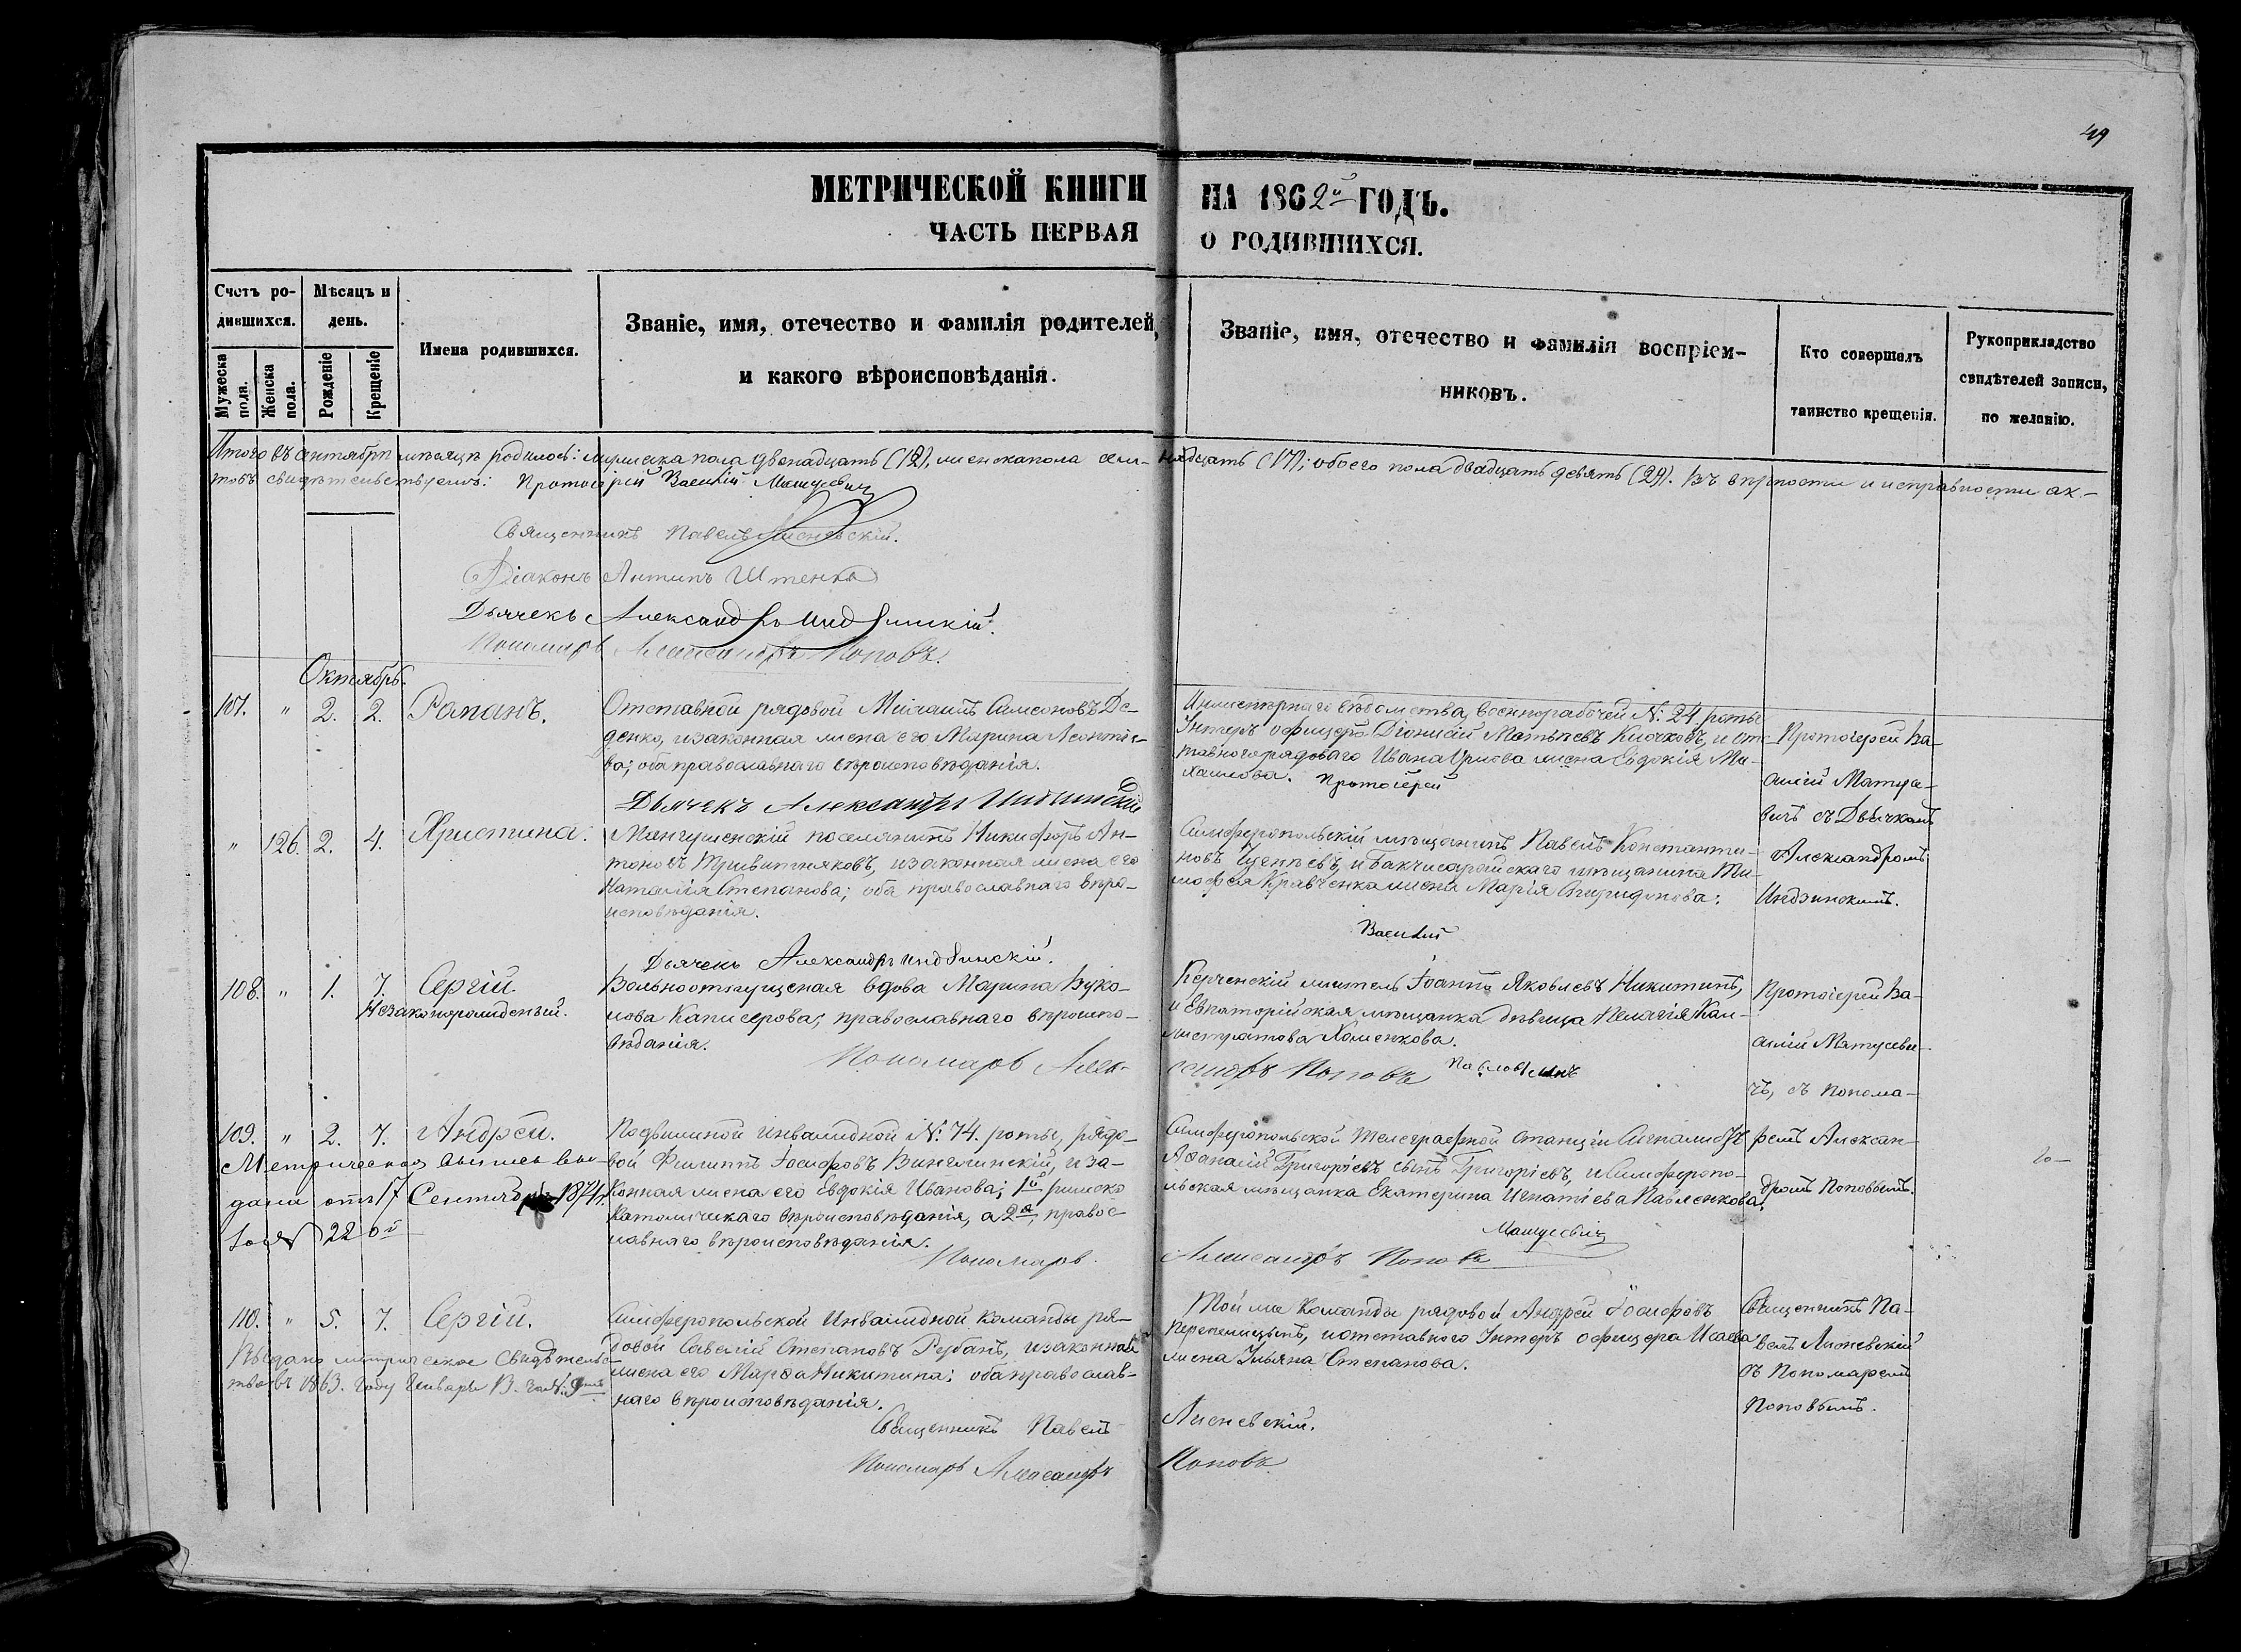 49
МЕТРИЧЕСКОЙ КНИГИ НА 1862й ГОДЪ.
ЧАСТЬ ПЕРВАЯ О РОДИВШИХСЯ.
Счетъ родившихся.
Мужеска пола.
Женска пола.
Мѣсяцъ и день.
Рожденіе
Крещеніе
Имена родившихся.
Званіе, имя, отечество и фамилія родителей,
и какого вѣроисповѣданія.
Званіе, имя, отечество и фамилія воспріем-
никовъ.
Кто совершалъ
таинство крещенія.
Рукоприкладство
свидѣтелей записи,
по желанію.
Итого въ Сентябрѣ мѣсяцѣ родилось: мужеска пола двенадцать (12), женска пола сем-надцать (17); обоего пола двадцать девять (29). Въ вѣрности и исправности ак-
товъ свидѣтельствуемъ: Протоіерей Василій Матусевичъ
Священникъ Павелъ Лисневскій.
Діаконъ Антипъ Штенко
Дьячекъ Александръ Индзинскій.
Пономарь Александръ Поповъ.
Октябрь.
107. " 2. 2. Романъ.
Отставной рядовой Михаилъ Самсоновъ Де-
денко, и законная жена его Марина Леонтіе-
ва; оба православнаго вѣроисповѣданія.
Дьячекъ Александръ Индзинскій
Инженернаго вѣдомства, военнорабочей №: 24. роты
Унтеръ офицеръ Діонисій Матвѣевъ Клочковъ, и отс-
тавного рядоваго Ивана жена Евдокія Ми-
хаилова. Протоіерей
Протоіерей Ва-
силій Матусе-
вичъ съ Дьячкомъ
Александромъ
Индзинскимъ.
" 126. 2. 4. Христина.
Мангушенскій поселянинъ Никифоръ Ан-
тоновъ Тривитняковъ, и законная жена его
Наталія Степанова; оба православнаго вѣро-
исповѣданія.
Дьячекъ Александръ Индзинскій.
Симферопольскій мѣщанинъ Павелъ Константи-
новъ и Бакчисарайскаго мѣщанина Ти-
мофея Кравченка жена Марія Спиридонова.
Василій
108. " 1. 7. Сергій.
Незаконорожденый.
Вольноотпущеная вдова Марина Вуко-
лова православнаго вѣроиспо-
вѣданія.
Пономарь Алек-
Керченскій житель Іоаннъ Яковлевъ Никитинъ,
и Евпаторійская мѣщанка дѣвица Пелагія Кал-
листратова Хоменкова.
сандръ Поповъ Павловичъ
Протоіерей Ва-
силій Матусеви-
чъ, съ Понома-
ремъ Алексан-
дромъ Поповымъ.
109. " 2. 7. Андрей.
Метрическая выпись вы-
дана отъ 17 Сентября 1871 г.
за № 226й
Подвижной инвалидной №: 74. роты, рядо-
вой Филиппъ Іосифовъ Винглинскій, и за-
конная жена его Евдокія Иванова; 1й римско
Католическаго вѣроисповѣданія, а 2я, правос-
лавнаго вѣроисповѣданія.
Пономарь
Симферопольской Телеграфной Станціи Сигналистъ
Афанасій Григоріевъ сынъ Григоріевъ, и Симферопо-
льская мѣщанка Екатерина Игнатіева Павленкова.
Матусевичъ
Александръ Поповъ
110. " 5. 7. Сергій.
Выдано метрическое свидѣтельс-
тво въ 1863. году Генваря
Симферопольской Инвалидной команды ря-
довой Савелій Степановъ Рубанъ, и законная
жена его Марфа Никитина; оба православ-
наго вѣроисповѣданія.
Священникъ Павелъ
Пономарь Александръ
Той же Команды рядовой Андрей Іосифовъ
Перепелицынъ, и отставного Унтеръ офицера Исаева
жена Ульяна Степанова.
Лисневскій.
Поповъ
Священникъ Па-
велъ Лисневскій
съ Пономаремъ
Поповымъ.